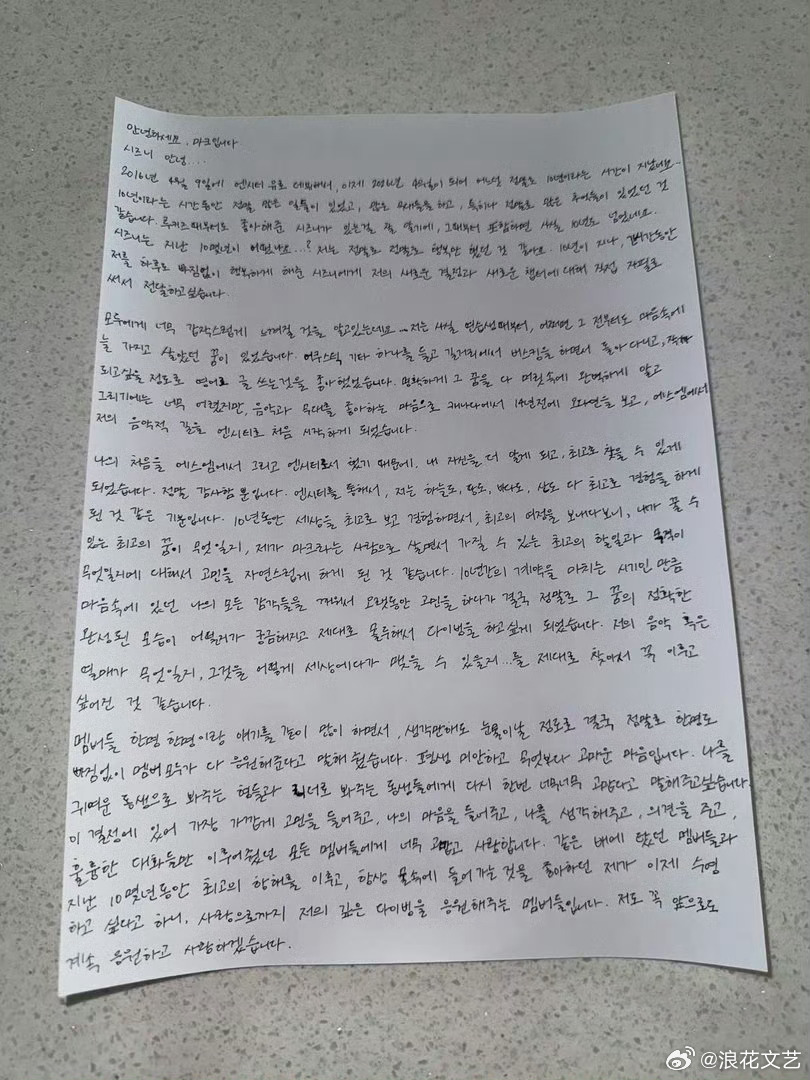 안녕하세요, 마크입니다
시즈니 안녕...
2016년 4월 9일에 엔시티 유로 데뷔해서, 이제 2026년 4월이 되어 어느새 정말로 10년이라는 시간이 지났네요..
10년이라는 시간동안 정말 많은 일들이 있었고, 많은 무대들을 하고, 특히나 정말로 많은 추억들이 있었던 것
같습니다. 루키즈때부터도 좋아해준 시즈니가 있는걸 잘 알기에, 그때부터 포함하면 사실 10년도 넘었네요.
시즈니는 지난 10몇년이 어땠나요...? 저는 정말로 정말로 행복만 했던 것 같아요. 10년이 지나, 긴시간동안
저를 하루도 빠짐없이 행복하게 해준 시즈니에게 저의 새로운 결정과 새로운 챕터에 대해 직접 자필로
써서 전달하고싶습니다.
모두에게 너무 갑작스럽게 느껴질 것을 알고있는데요... 저는 사실 연습생때부터, 어쩌면 그 전부터도 마음속에
늘 가지고 살았던 꿈이 있었습니다. 어쿠스틱 기타 하나를 들고 길거리에서 버스킹을 하면서 돌아다니고, 작가
되고싶을 정도로 영어로 글 쓰는것을 좋아했었습니다. 명확하게 그 꿈을 다 머릿속에 완벽하게 알고
그리기에는 너무 어렸지만, 음악과 무대를 좋아하는 마음으로 캐나다에서 14년전에 오디션을 보고, 에스엠에서
저의 음악적 길을 엔시티로 처음 시작하게 되었습니다.
나의 처음을 에스엠에서 그리고 엔시티로서 했기 때문에, 내 자신을 더 알게 되고, 최고로 찾을 수 있게
되었습니다. 정말 감사함 뿐입니다. 엔시티를 통해서, 저는 하늘도, 땅도, 바다도, 산도 다 최고로 경험을 하게
된 것 같은 기분입니다. 10년동안 세상을 최고로 보고 경험하면서, 최고의 여정을 보내다보니, 내가 꿀 수
있는 최고의 꿈이 무엇일지, 제가 마크라는 사람으로 살면서 가질 수 있는 최고의 할일과 목적이
무엇일지에 대해서 고민을 자연스럽게 하게 된 것 같습니다. 10년간의 계약을 마치는 시기인 만큼
마음속에 있던 나의 모든 감각들을 깨워서 오랫동안 고민을 하다가 결국 정말로 그 꿈의 정확한
완성된 모습이 어떨려가 궁금해지고 제대로 몰두해서 다이빙을 하고싶게 되었습니다. 저의 음악 혹은
열매가 무엇일지, 그것을 어떻게 세상에다가 맺을 수 있을지...를 제대로 찾아서 꼭 이루고
싶어진 것 같습니다.
멤버들 한명 한명이랑 얘기를 같이 많이 하면서, 생각만해도 눈물이날 정도로 결국 정말로 한명도
빠짐없이 멤버 모두가 다 응원해준다고 말해줬습니다. 평생 미안하고 무엇보다 고마운 마음입니다. 나를
귀여운 동생으로 봐주는 형들과 리더로 봐주는 동생들에게 다시 한번 너무너무 고맙다고 말해주고싶습니다.
이 결정에 있어 가장 가깝게 고민을 들어주고, 나의 마음을 들어주고, 나를 생각해주고, 의견을 주고,
훌륭한 대화들만 이루어줬던 모든 멤버들에게 너무 고맙고 사랑합니다. 같은 배에 탔던 멤버들과
지난 10몇년동안 최고의 항해를 이루고, 항상 물속에 들어가는것을 좋아하던 제가 이제 수영
하고 싶다고 하니, 사랑으로까지 저의 깊은 다이빙을 응원해주는 멤버들입니다. 저도 꼭 앞으로도
계속 응원하고 사랑하겠습니다.
@浪花文艺